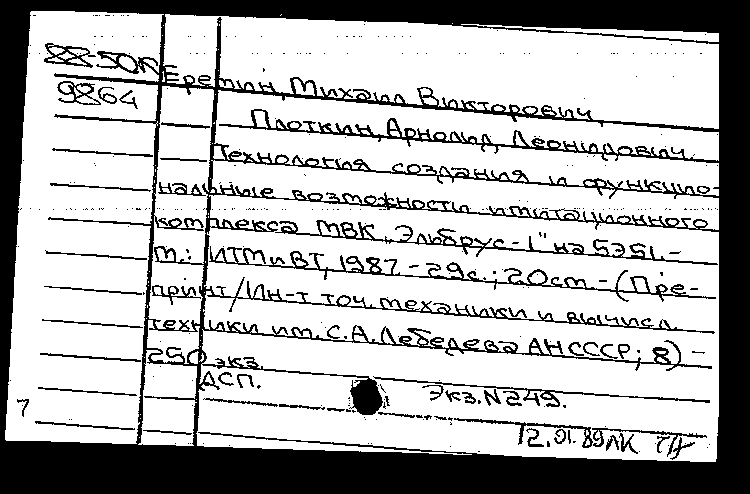 88-50к
9864
Еретин, Михаил Викторович,
Плоткин, Арнольд Леонидович.
Технология создания и функцио-
нальные возможности имитационного
комплекса МВК „Эльбрус-1" на БЭВ1.-
М.: ИТМиВТ, 1987.- 29с.; 20см.-(Пре-
принт/Ин-т точ. механики и вычисл.
техники им. С.А.Лебедева АН СССР; 8) -
250 экз.
ДСП.
Экз. N249.
7
12.01.89 ЛК